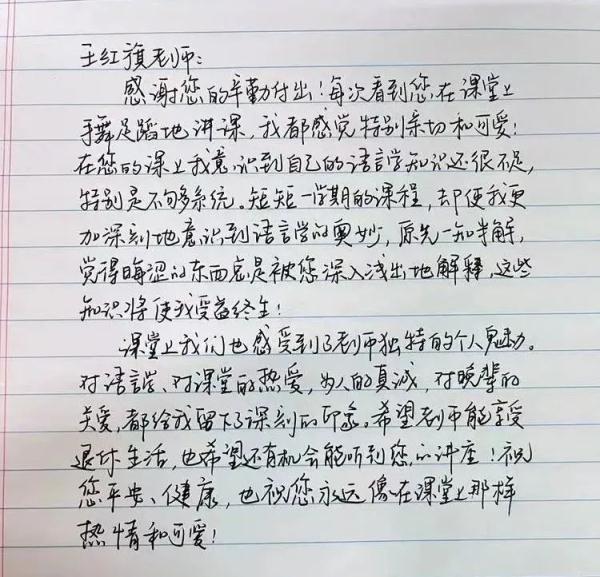 王红旗老师:
感谢您的辛勤付出!每次看到您在课堂上
手舞足蹈地讲课,我都感觉特别亲切和可爱!
在您的课上我意识到自己的语言学知识还很不足,
特别是不够系统。短短一学期的课程,却使我更
加深刻地意识到语言学的奥妙,原先一知半解,
觉得晦涩的东西总是被您深入浅出地解释,这些
知识将使我受益终生!
课堂上我们也感受到了老师独特的个人魅力。
对语言学、对课堂的热爱,为人的真诚,对晚辈的
关爱,都给我留下了深刻的印象。希望老师能享受
退休生活,也希望还有机会能听到您的讲座!祝
您平安、健康,也祝您永远像在课堂上那样
热情和可爱!